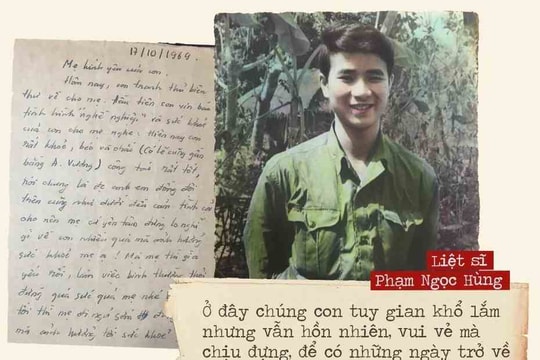 17/10/1969.
Mẹ kính yêu của con.
Hôm nay, con tranh thủ biên
thư về cho mẹ. Đầu tiên con xin báo
tình hình "nghề nghiệp" và sức khoẻ
của con cho mẹ nghe: Hiện nay con
rất khoẻ, béo và chắc (có lẽ cũng gần
bằng A. Vương) công tác rất tốt,
nói chung là được anh em đồng đội
trên cũng như dưới đều cảm tình cả
cho nên mẹ cứ yên tâm đừng lo nghĩ
gì về con nhiều quá mà ảnh hưởng
sức khoẻ mẹ ạ! Mẹ thì già
yếu rồi, làm việc bình thường thôi
đừng quá sức quá mẹ nhé
tối thì mẹ đi ngủ sớm
mà ảnh hưởng tới sức khoẻ
Liệt sĩ
Phạm Ngọc Hùng
Ở đây chúng con tuy gian khổ lắm
nhưng vẫn hồn nhiên, vui vẻ mà
chịu đựng, để có những ngày trở về